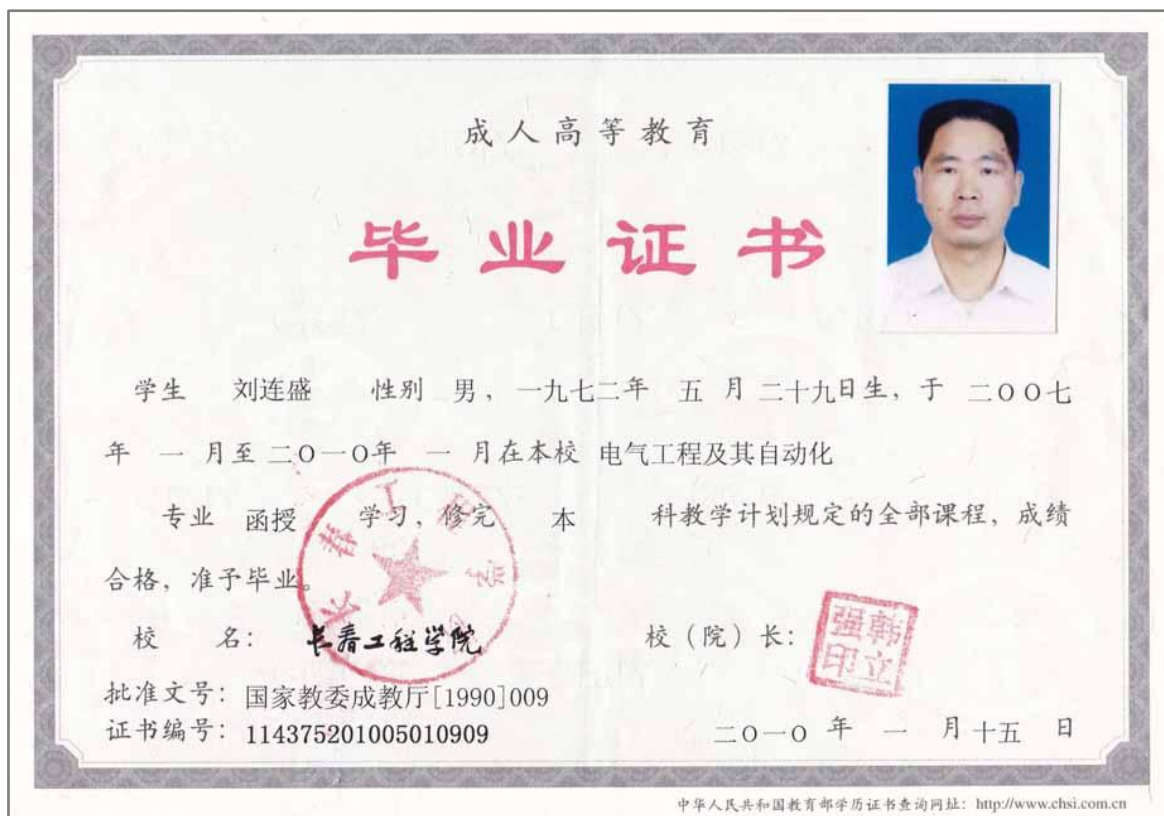 成人高等教育
毕业证书
学生 刘连盛 性别 男，一九七二年 五 月 二十九日生，于 二〇〇七
年 一 月至 二〇一〇年 一 月在本校 电气工程及其自动化
专业 函授 学习，修完 本 科教学计划规定的全部课程，成绩
合格，准予毕业。
校 名： 长春工程学院 校（院）长： 韩立强印
批准文号：国家教委成教厅[1990]009
证书编号：114375201005010909 二〇一〇 年 一 月 十五 日
中华人民共和国教育部学历证书查询网址：http://www.chsi.com.cn
长春工程学院